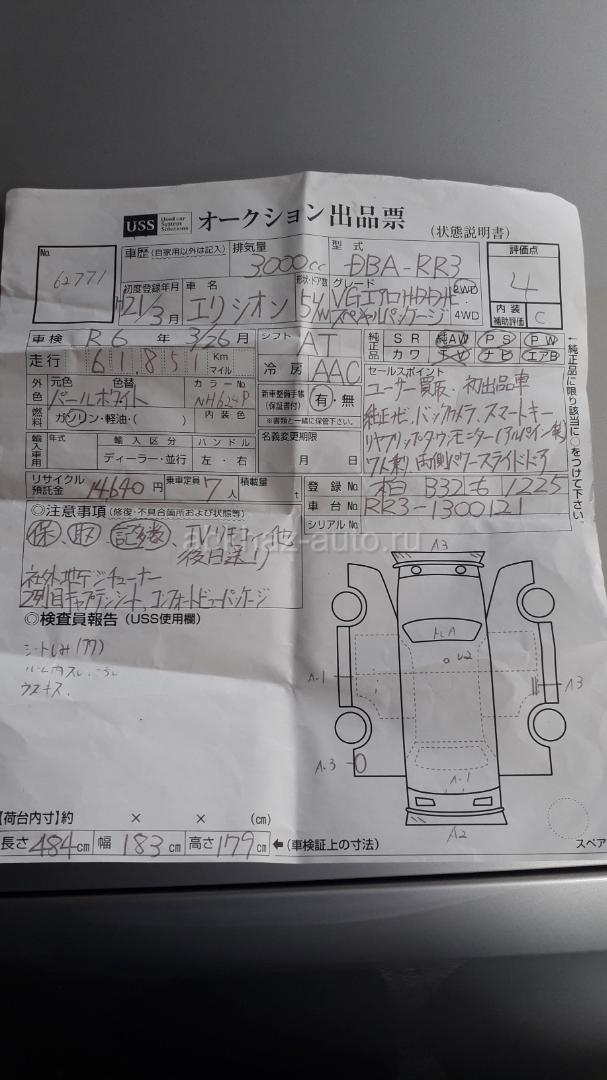 USS Used car System Solutions オークション 出品票 (状態説明書)
No. 62771
車歴 (自家用以外は記入) 排気量 3000cc 型式 DBA-RR3 評価点 4
初度登録年月 H21/3月 車名 エリシオン 形状・ドア数 5/W グレード VGエアロHDDナビ スペシャルパッケージ 2WD 4WD
内装補助評価 C
車検 R6年 3/26月 シフト AT 純正品 SR 純AW PS PW
カワ TV ナビ エアB
走行 61,851 Km マイル 冷房 AAC
外色 元色 パールホワイト 色替 カラーNo. NH624P
燃料 ガソリン・軽油・( ) 内装色
新車整備手帳 (保証書付) 有・無
※書類と一緒に保管下さい。
輸入車用 年式 輸入区分 ハンドル
ディーラー・並行 左・右
名義変更期限 月 日
リサイクル預託金 14640円 乗車定員 7人 積載量 t
セールスポイント
ユーザー買取・初出品車
純正ナビ、バックカメラ、スマートキー
リヤフリップダウンモニター(アルパイン製)
7人乗 両側パワースライドドア
←純正品に限り該当に○をつけて下さい。
登録No. 柏 332 も 1225
車台No. RR3-1300121
シリアルNo.
◎注意事項 (修復・不具合箇所および状態等)
保、取、記録、TVリモコン他
後日送り
社外地デジチューナー
2列目キャプテンシート、コンフォートビューパッケージ
◎検査員報告 (USS使用欄)
シートしみ
ウスキズ.
A3
U2
A-1
A3
A-3
A-1
A2
【荷台内寸】約 × × (cm)
長さ 484cm 幅 183cm 高さ 179cm ←(車検証上の寸法)
スペア
akebraz-auto.ru